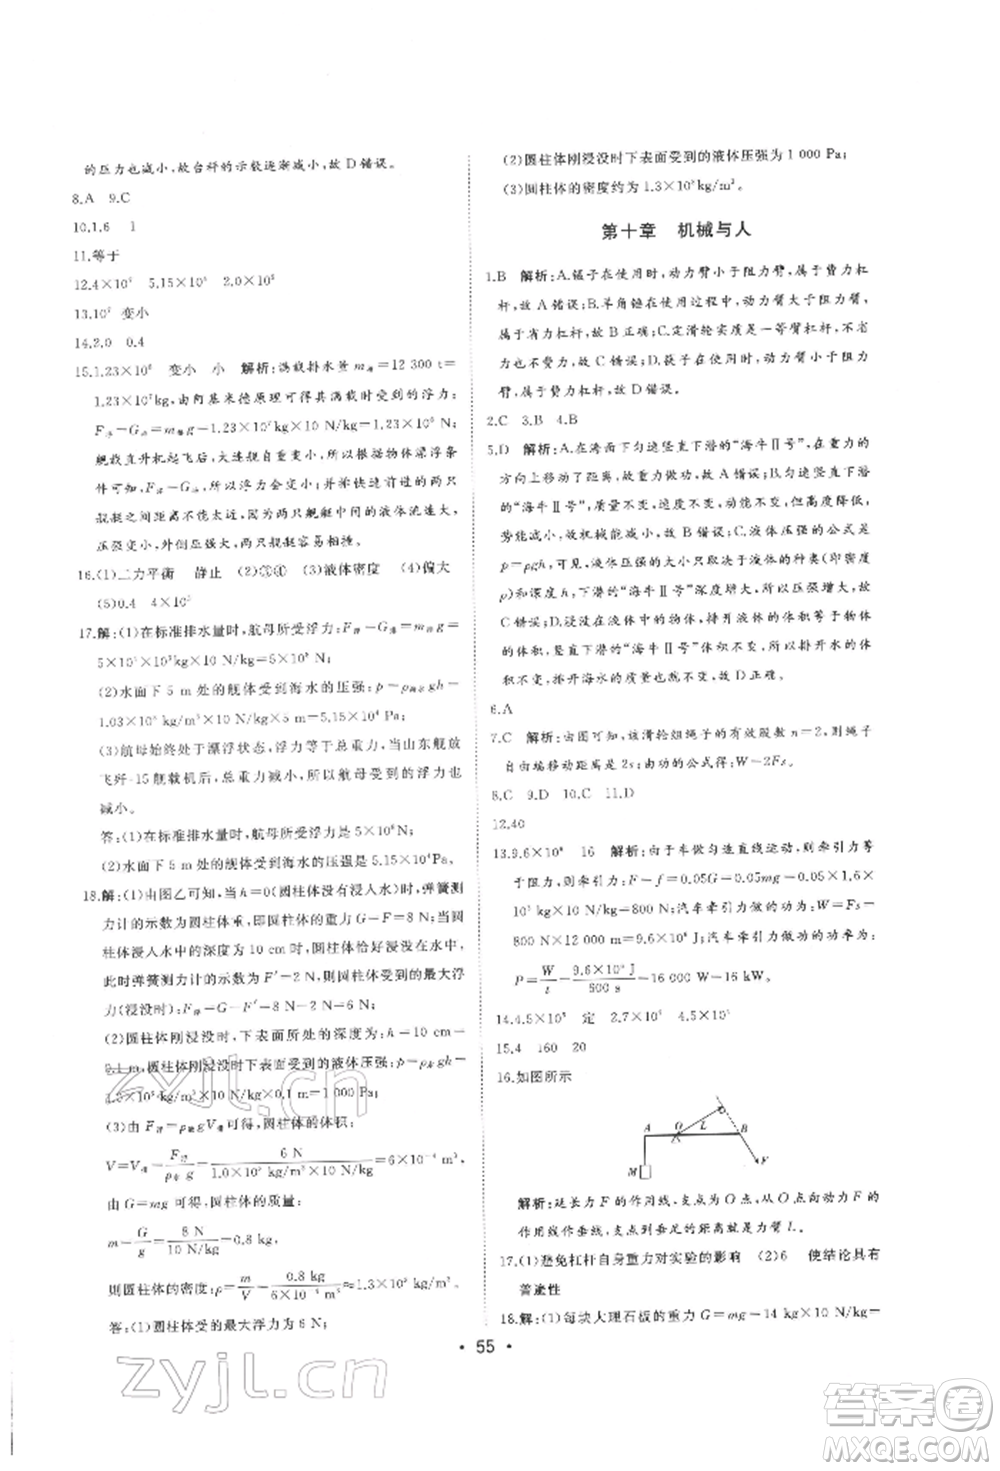 的压力也减小,故台秤的示数逐渐减小,故 D 错误。
8.A 9.C
10.1.6 1
11.等于
变小
14.2.0 0.4
变小 小 解析:满载排水量 m排=12 300 t=
1.23×10⁷kg,由阿基米德原理可知满载时受到的浮力:
舰载直升机起飞后,大连舰仍漂浮,根据物体漂浮条
件可知,F浮=G物,所以浮力减小;并排行驶时两只
舰艇之间距离不能太近,因为两只舰艇中的液体流速大、
压强变小,外侧压强大,两只舰艇容易相撞。
16.(1)二力平衡 静止 (3)液体密度 (4)偏大
17.解:(1)在标准排水量时,航母所受浮力:F浮=G排=m排g=
(2)水面下 5 m 处的舰体受到海水的压强:p=ρ海水gh=
1.03×10³ kg/m³×10 N/kg×5 m=5.15×10⁴ Pa;
(3)航母始终处于漂浮状态,浮力等于总重力,当山东舰放
飞歼-15 舰载机后,总重力减小,所以航母受到的浮力也
减小。
答:(1)在标准排水量时,航母所受浮力为5×10⁸ N;
(2)水面下 5 m 处的舰体受到海水的压强是 5.15×10⁴Pa。
18.解:(1)由图乙可知,当 h=0(圆柱体没有浸入水)时,弹簧测
力计的示数为圆柱体重,即圆柱体的重力 G=F=8 N;当圆
柱体浸入水中的深度为 10 cm 时,圆柱体恰好浸没在水中,
此时弹簧测力计的示数为 F′=2 N,则圆柱体受到的最大浮
力(浸没时)F浮=G-F′=8 N-2 N=6 N;
(2)圆柱体刚浸没时,下表面所处的深度为:h=10 cm=
0.1 m,圆柱体刚浸没时下表面受到的液体压强:p=ρ水gh=
1.0×10³ kg/m³×10 N/kg×0.1 m=1 000 Pa;
(3)由 F浮=ρ液gV排可得,圆柱体的体积:
V=V排=F浮/ρ水g=6 N/1.0×10³ kg/m³×10 N/kg=6×10⁻⁴ m³
由 G=mg 可得,圆柱体的质量:
m=G/g=8 N/10 N/kg=0.8 kg,
则圆柱体的密度:ρ=m/V=0.8 kg/6×10⁻⁴ m³≈1.3×10³ kg/m³。
答:(1)圆柱体受的最大浮力为 6 N;
(2)圆柱体刚浸没时下表面受到的液体压强为 1 000 Pa;
(3)圆柱体的密度约为 1.3×10³kg/m³。
第十章 机械与人
1.B 解析:A.镊子在使用时,动力臂小于阻力臂,属于费力杠
杆,故 A 错误;B.羊角锤在使用过程中,动力臂大于阻力臂,
属于省力杠杆,故 B 正确;C.定滑轮实质是一等臂杠杆,不
省力也不费力,故 C 错误;D.筷子在使用时,动力臂小于阻力
臂,属于费力杠杆,故 D 错误。
2.C 3.B 4.B
5.D 解析:A.在海面下匀速竖直下潜的“海牛Ⅱ号”,在重力的
方向上移动了距离,故重力做功,故 A 错误;B.匀速竖直下潜
的“海牛Ⅱ号”,质量不变,速度不变,动能不变,但高度降低,
势能减小,故机械能减小,故 B 错误;C.液体压强的公式是
p=ρgh,可见,液体压强的大小只取决于液体的种类(即密度
ρ)和深度 h,“海牛Ⅱ号”深度增大,所以压强增大,故 C
错误;D.浸没在液体中的物体下沉时,排开液体的体积不变,
所以竖直下潜的“海牛Ⅱ号”体积不变,则排开水的
体积不变,排开海水的质量不变,故 D 正确。
6.A
7.C 解析:由图可知,该滑轮组绳子的有效股数 n=2,则绳子
自由端移动距离是 2s;由功的公式得:W=2Fs。
8.C 9.D 10.C 11.D
12.40
13.9.6×10⁶ 16 解析:由于车做匀速直线运动,则牵引力等
于阻力,牵引力:F=f=0.05G=0.05mg=0.05×1.6×
10³ kg×10 N/kg=800 N;汽车牵引力做的功:W=Fs=
800 N×12 000 m=9.6×10⁶ J;汽车牵引力做功的功率为:
P=W/t=9.6×10⁶ J/600 s=16 000 W=16 kW。
15.4 160 20
16.如图所示
A O L B
M F
解析:延长力 F 的作用线,支点为 O 点,从 O 点向动力的
作用线作垂线,支点到垂足的距离就是力臂 l。
17.(1)避免杠杆自身重力对实验的影响 (2)6 使结论具有
普遍性
18.解:(1)每块大理石板的重力 G=mg=14 kg×10 N/kg=
• 55 •
zyjl.cn
zyjl.cn
答案卷
MXQE.COM